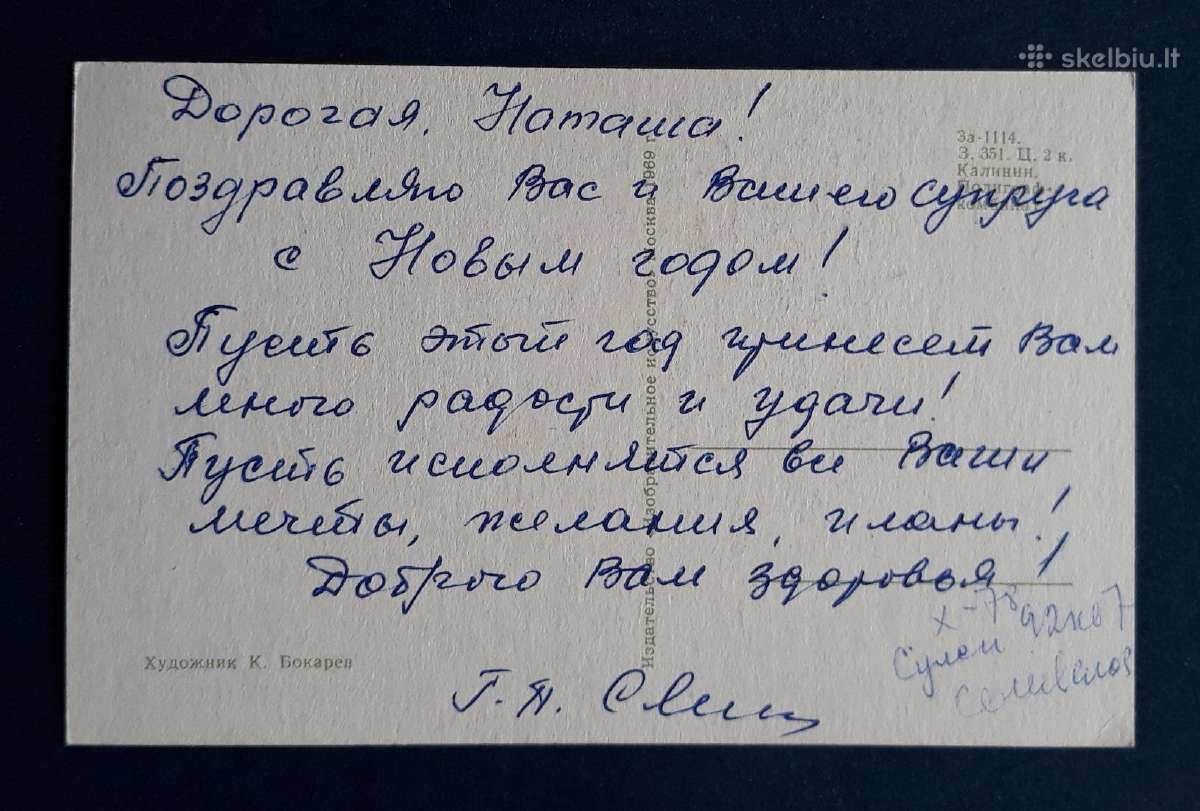 skelbiu.lt
Дорогая, Наташа!
За-1114.
З. 351. Ц. 2 к.
Калинин.
Поздравляю Вас и Вашего супруга
с Новым годом!
Пусть этый год принесет Вам
много радости и удачи!
Пусть исполнятся все Ваши
мечты, желания, планы!
Доброго Вам здоровья!
Издательство «Изобразительное искусство». Москва. 1969 г.
Художник К. Бокарев
Г. П.